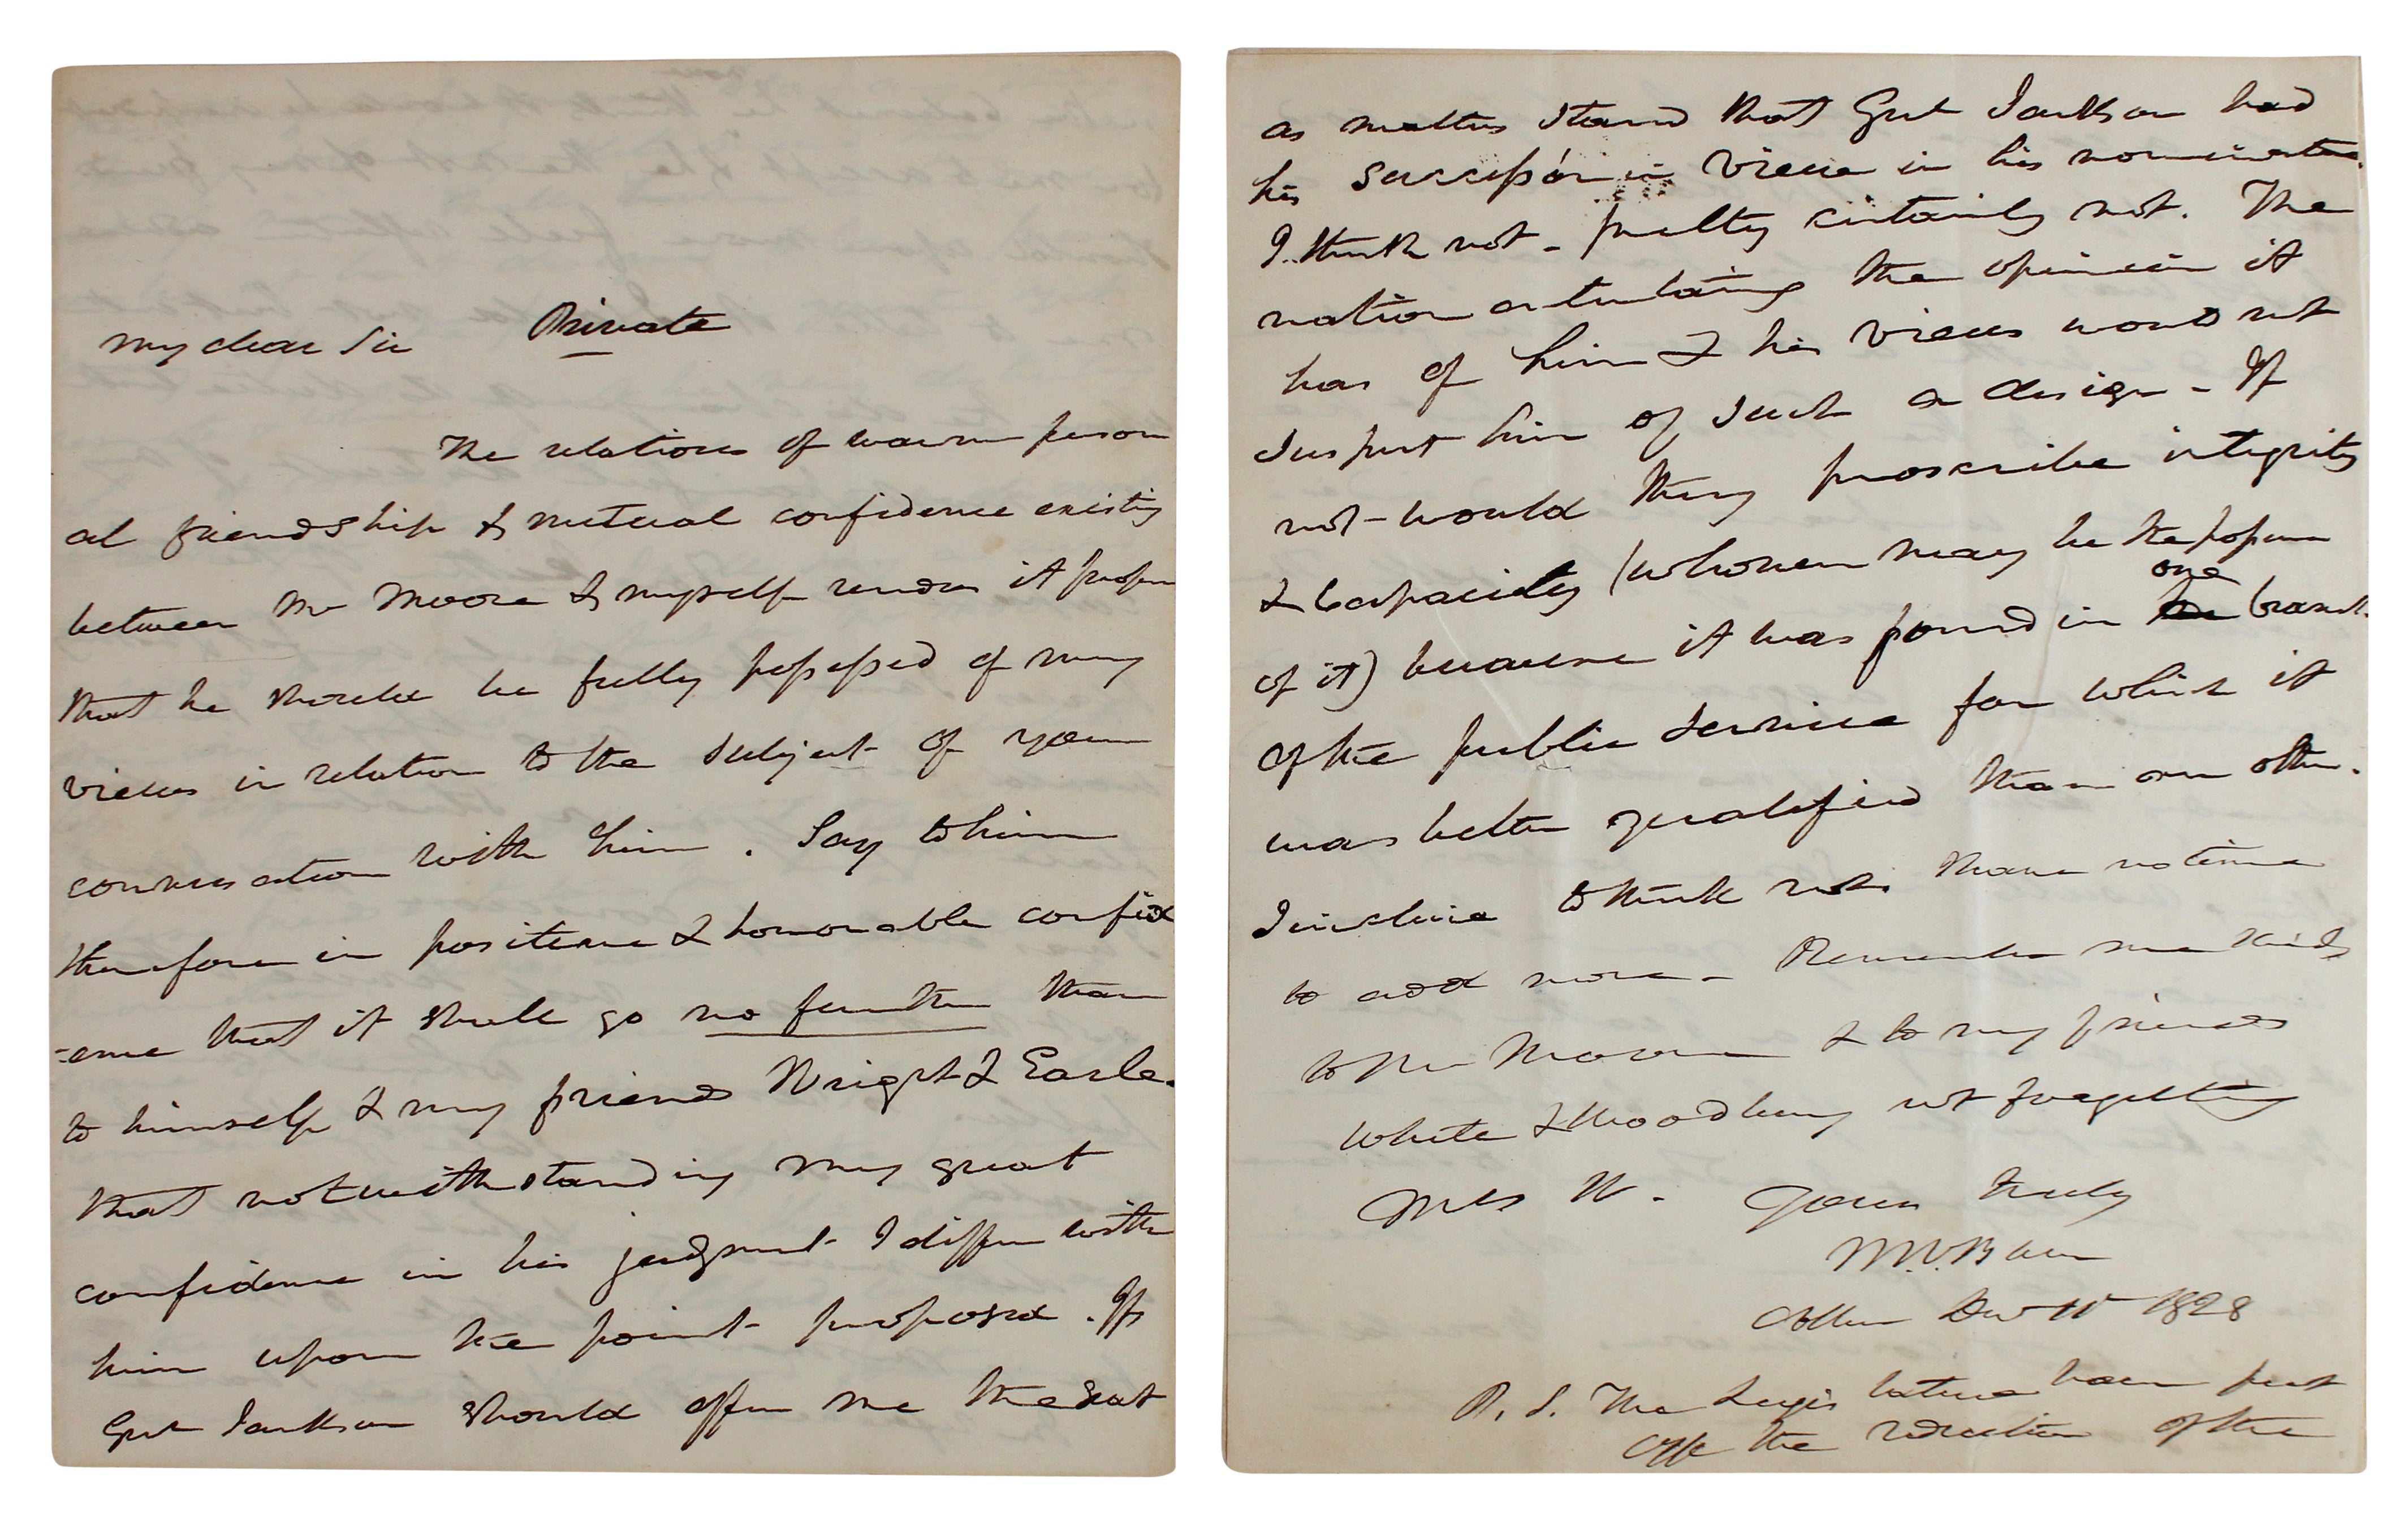 Private
My dear Sir
The relations of warm person
al friendship & mutual confidence existing
between Mr Moore & myself renders it proper
that he should be fully possessed of my
views in relation to the subject of your
conversation with him. Say to him
therefore in positive & honorable confid
-ence that it shall go no further than
to himself & my friends Wright & Earle.
that notwithstanding my great
confidence in his judgment I differ with
him upon the point proposed. If
Genl Jackson should offer me the seat
as matters stand that Genl Jackson had
his successor in view in his nomination.
I think not - pretty certainly not. The
nation entertaining the opinion it
has of him & his views would not
suspect him of such a design - If
not - would they proscribe integrity
& capacity (whoever may be the
of it) because it was found in one branch
of the public service for which it
was better qualified than an other.
I incline to think not. I have no time
to add more - Remember me kindly
to Mr & to my friends
White & Woodbury not forgetting
Mrs W. Yours truly
M.V.Buren
Dec 1828
P.S. The Legislature have put
off the election of the